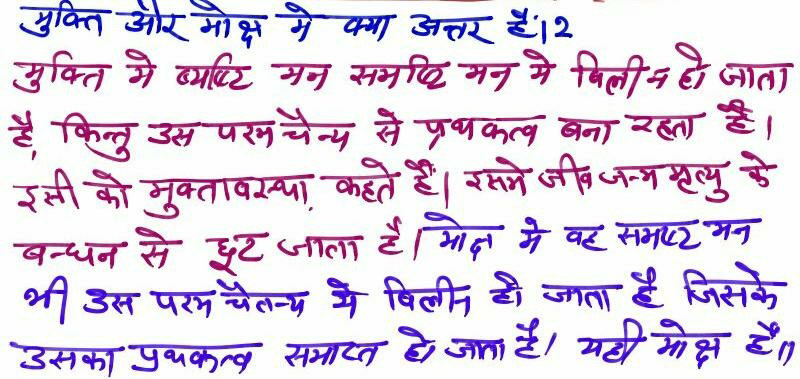 मुक्ति और मोक्ष मे क्या अन्तर है।2
मुक्ति मे व्यष्टि मन समष्टि मन मे विलीन हो जाता
है, किन्तु उस परम चैन्य से प्रथकत्व बना रहता है।
इसी को मुक्तावस्था, कहते हैं। इसमे जीव जन्म मृत्यु के
बन्धन से छूट जाता है। मोक्ष मे वह समष्टि मन
भी उस परम चैतन्य मे विलीन हो जाता है जिसके
उसका प्रथकत्व समाप्त हो जाता है। यही मोक्ष है॥